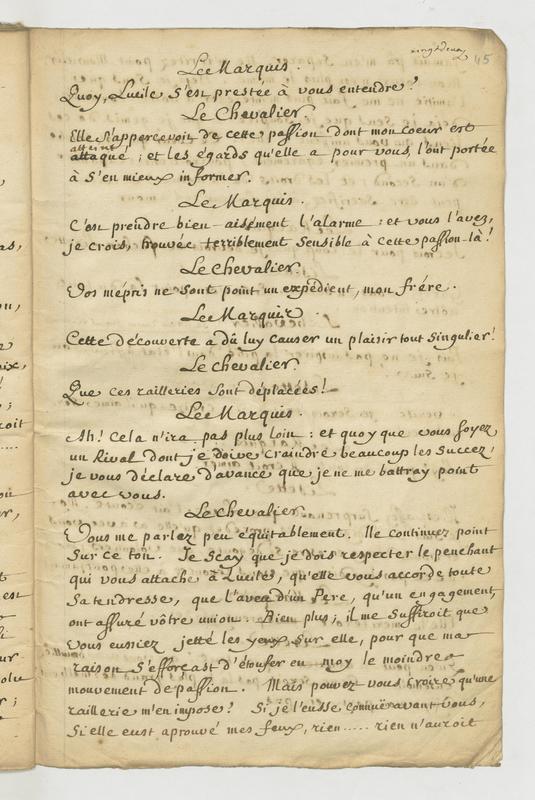 vingt deux
45
Le Marquis.
Quoy, Lucile s'est prestée à vous entendre?
Le Chevalier.
Elle s'appercevoit de cette passion dont mon coeur est
atteint
attaqué; et les égards qu'elle a pour vous, l'ont portée
à s'en mieux informer.
Le Marquis.
C'est prendre bien aisément l'alarme: et vous l'avez,
je crois, trouvée terriblement sensible à cette passion-là!
Le Chevalier.
Vos mépris ne sont point un expédient, mon frére.
Le Marquis
Cette découverte a dû luy causer un plaisir tout singulier!
Le Chevalier.
Que ces railleries sont déplacées!
Le Marquis.
Ah! Cela n'ira pas plus loin: et quoy que vous soyez
un Rival dont je doive craindre beaucoup les succez,
je vous déclare d'avance que je ne me battray point
avec vous.
Le Chevalier.
Vous me parlez peu équitablement. Ne continuez point
sur ce ton. Je sçay que je dois respecter le penchant
qui vous attache à Lucile, qu'elle vous accorde toute
sa tendresse, que l'aveu d'un Pere, qu'un engagement,
ont assuré vôtre union. Bien plus; il me suffiroit que
vous eussiez jetté les yeux sur elle, pour que ma
raison s'efforcast d'étoufer en moy le moindre
mouvement de passion. Mais pouvez vous croire qu'une
raillerie m'en impose? Si je l'eusse connuë avant vous,
si elle eust aprouvé mes feux, rien ..... rien n'auroit